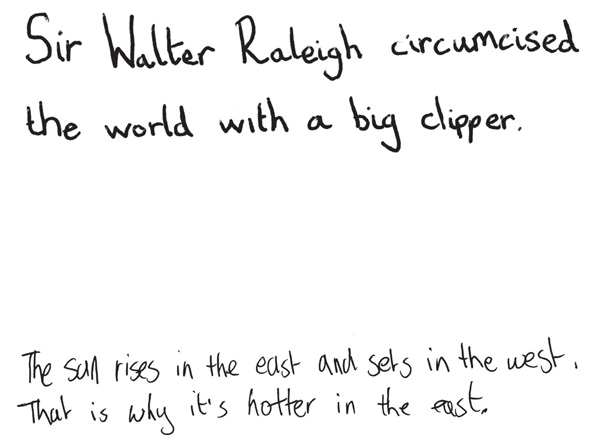 Sir Walter Raleigh circumcised
the world with a big clipper.
The sun rises in the east and sets in the west.
That is why it's hotter in the east.